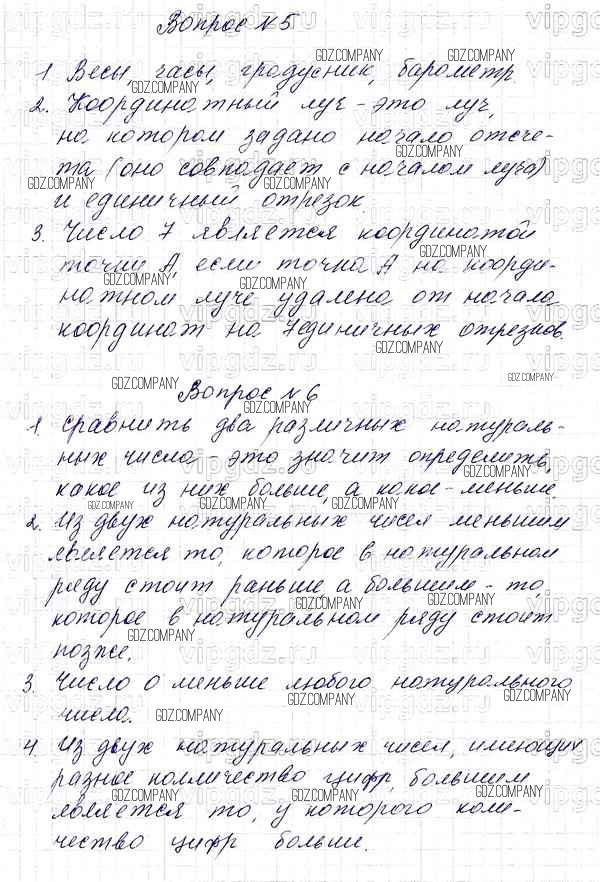 Вопрос №5
1. Весы, часы, градусник, барометр
2. Координатный луч - это луч,
на котором задано начало отсче-
та (оно совпадает с началом луча)
и единичный отрезок.
3. Число 7 является координатой
точки А, если точка А на коорди-
натном луче удалена от начала
координат на 7 единичных отрезков.
Вопрос №6
1. сравнить два различных натураль-
ных числа - это значит определить,
какое из них больше, а какое - меньше.
2. Из двух натуральных чисел меньшим
является то, которое в натуральном
ряду стоит раньше, а большим - то,
которое в натуральном ряду стоит
позже.
3. Число 0 меньше любого натурального
числа.
4. Из двух натуральных чисел, имеющих
разное колличество цифр, большим
является то, у которого коли-
чество цифр больше.
GDZ.COMPANY
vipgdz.ru